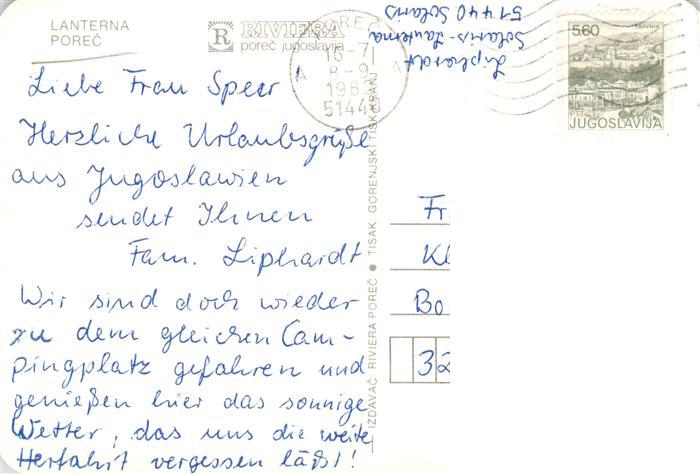 LANTERNA
POREČ
R RIVIERA
poreč jugoslavija
Liebe Frau Speer!
Herzliche Urlaubsgrüße
aus Jugoslawien
sendet Ihnen
Fam. Liphardt
Wir sind doch wieder
zu dem gleichen Cam-
pingplatz gefahren und
genießen hier das sonnige
Wetter, das uns die weite
Herfahrt vergessen läßt!
16-7
8-9
51440
A A
IZDAVAČ RIVIERA POREČ ● TISAK GORENJSKI TISK KRANJ
Liphardt
Solaris-Lanterna
51440 Solaris
5,60
JUGOSLAVIJA
Fr
Kl
Bo
32